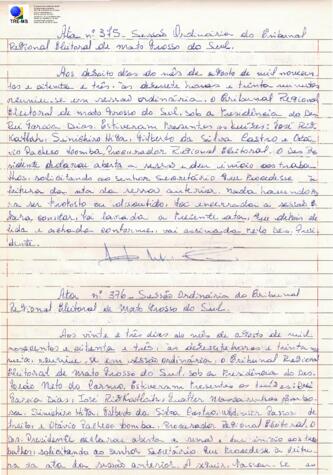 TRE-MS
Ata nº 375 - Sessão Ordinária do Tribunal
Regional Eleitoral de Mato Grosso do Sul.
Aos dezoito dias do mês de agosto de mil novecen-
tos e oitenta e três, às dezessete horas e trinta minutos
reuniu-se em sessão ordinária, o Tribunal Regional
Eleitoral de Mato Grosso do Sul, sob a Presidência do Des.
Rui Garcia Dias. Estiveram Presentes os Juízes: José Rizk
Gilberto da Silva Castro e Otá-
vio Pacheco Lomba, Procurador Regional Eleitoral. O Des. Pre-
sidente declarou aberta a sessão e deu início aos traba-
lhos, solicitando ao senhor Secretário que Procedesse a
leitura da ata da sessão anterior. Nada havendo
ra ser tratado ou discutido, foi encerrada a sessão. E
para constar, foi lavrada a Presente ata, que depois de
lida e achada conforme, vai assinada pelo Des. Presi-
dente.
Ata nº 376 - Sessão Ordinária do Tribunal
Regional Eleitoral de Mato Grosso do Sul.
Aos vinte e três dias do mês de agosto de mil
novecentos e oitenta e três, às dezessete horas e trinta mi-
nutos, reuniu-se em sessão ordinária, o Tribunal Regional
Eleitoral de Mato Grosso do Sul, sob a Presidência do Des.
Neto do Carmo. Estiveram Presentes os Juízes: Rui
Garcia Dias, José Rizk
Gilberto da Silva Castro, Passos de
Freitas, e Otávio Pacheco Lomba, Procurador Regional Eleitoral. O
Des. Presidente declarou aberta a sessão e deu início aos tra-
balhos, solicitando ao senhor Secretário que Procedesse a leitu-
ra da ata da sessão anterior. A seguir,